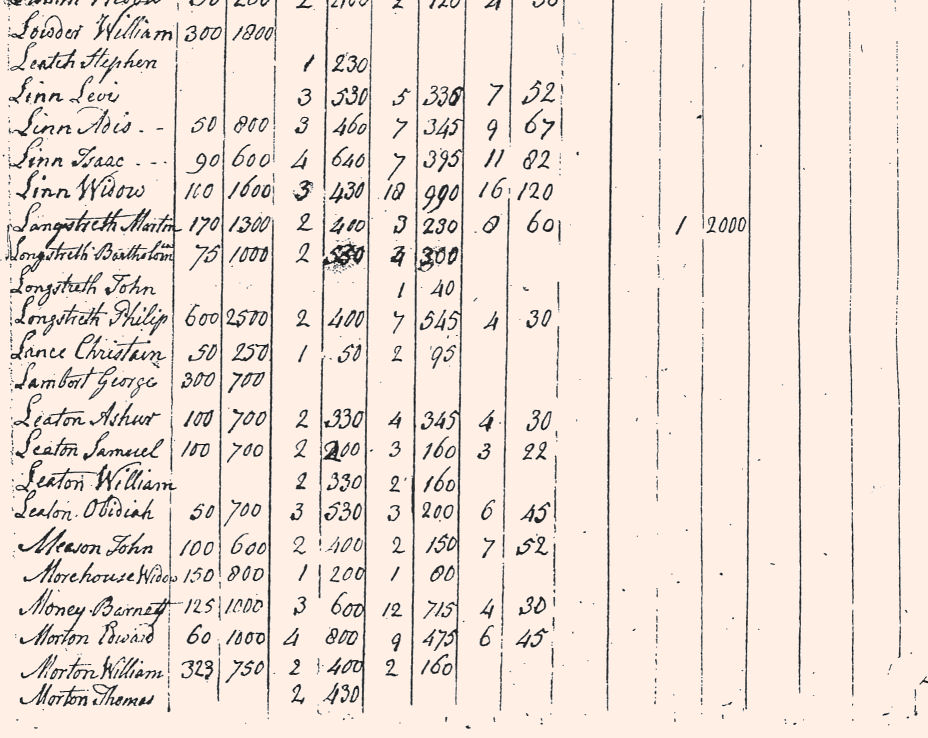 200 2 2 120 4 30
Lowder William 300 1800
Leatch Stephen 1 230
Linn Levi 3 530 5 330 7 52
Linn Adis - - 50 800 3 460 7 345 9 67
Linn Isaac - - - 90 600 4 640 7 395 11 82
Linn Widow 110 1600 3 430 18 990 16 120
Langstreth Martin 170 1300 2 400 3 230 8 60 1 2000
Longstreth Bartholm 75 1000 2 530 4 300
Longstreth John 1 40
Longstreth Philip 600 2500 2 400 7 545 4 30
Lance Christain 50 250 1 50 2 95
Lambort George 300 700
Leaton Ashur 100 700 2 330 4 345 4 30
Leaton Samuel 100 700 2 200 3 160 3 22
Leaton William 2 330 2 160
Leaton Obidiah 50 700 3 530 3 200 6 45
Meason John 100 600 2 400 2 150 7 52
Morehouse Widow 150 800 1 200 1 80
Money Barnett 125 1000 3 600 12 715 4 30
Morton Edward 60 1000 4 800 9 475 6 45
Morton William 323 750 2 400 2 160
Morton Thomas 2 430